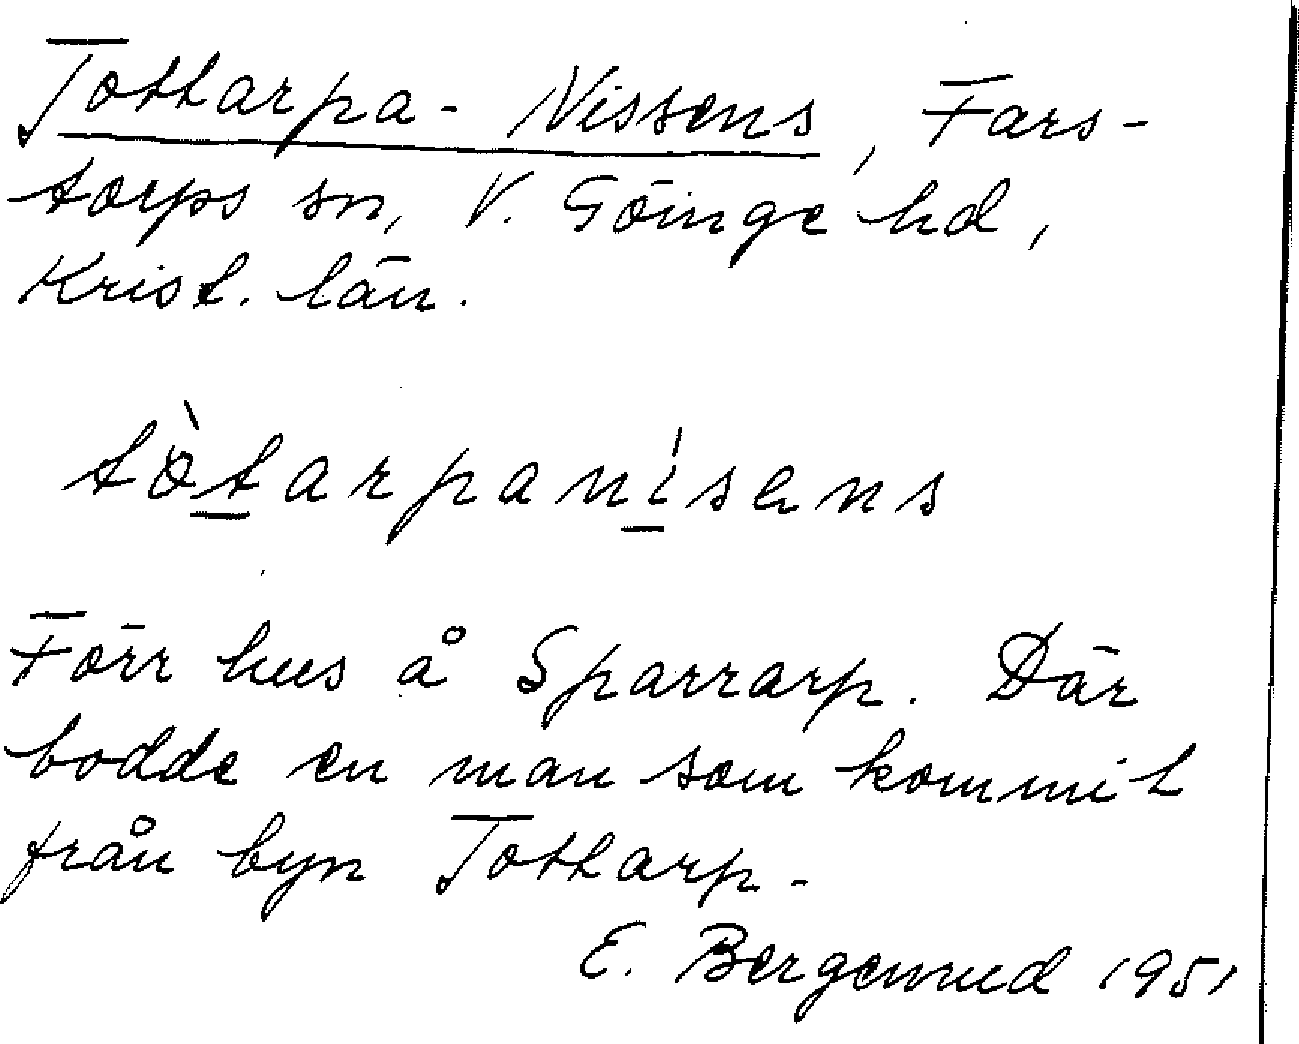 Tottarpa-Nissens, Fars-
torps sn, V. Göinge hd,
Krist. län.
tòtarpanisens
Förr hus å Sparrarp. Där
bodde en man som kommit
från byn Tottarp.
E. Bergemud 1951